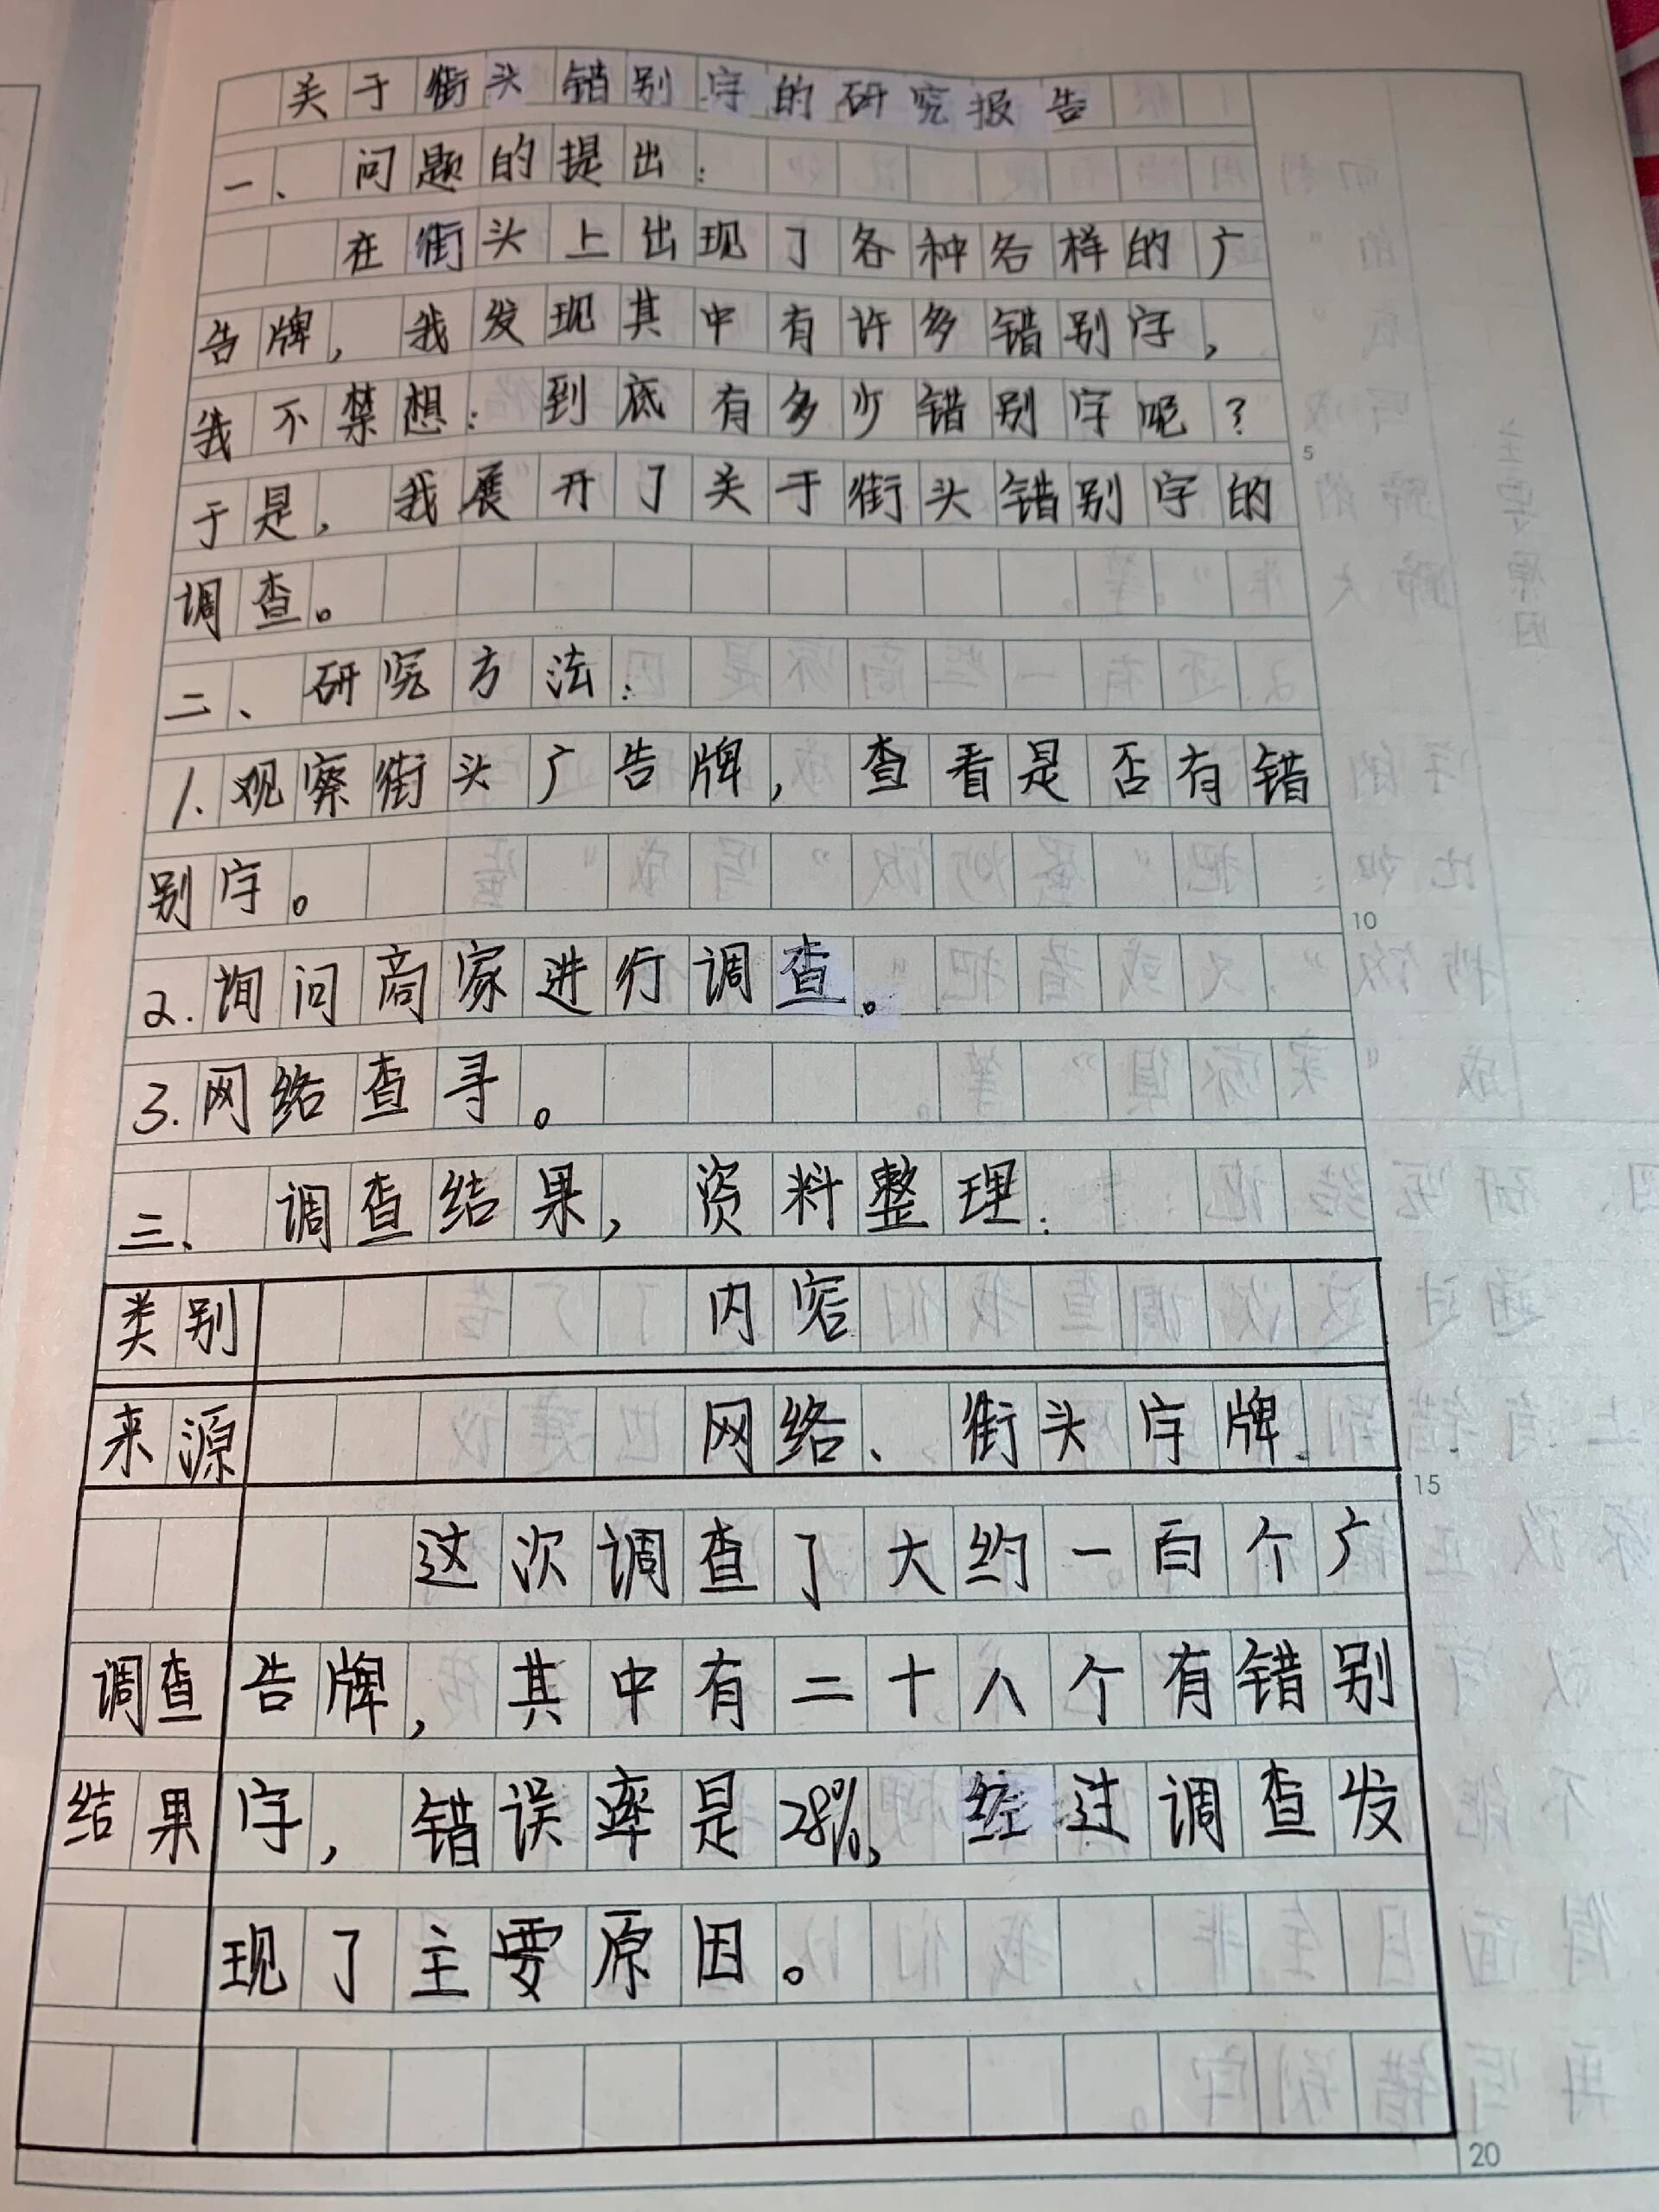 关于街头错别字的研究报告
一、问题的提出：
在街头上出现了各种各样的广
告牌，我发现其中有许多错别字，
我不禁想：到底有多少错别字呢？
于是，我展开了关于街头错别字的
调查。
二、研究方法：
1.观察街头广告牌，查看是否有错
别字。
2.询问商家进行调查。
3.网络查寻。
三、调查结果，资料整理：
类别 内容
来源 网络、街头字牌
这次调查了大约一百个广
调查 告牌，其中有二十八个有错别
结果 字，错误率是28%，经过调查发
现了主要原因。
5
10
15
20